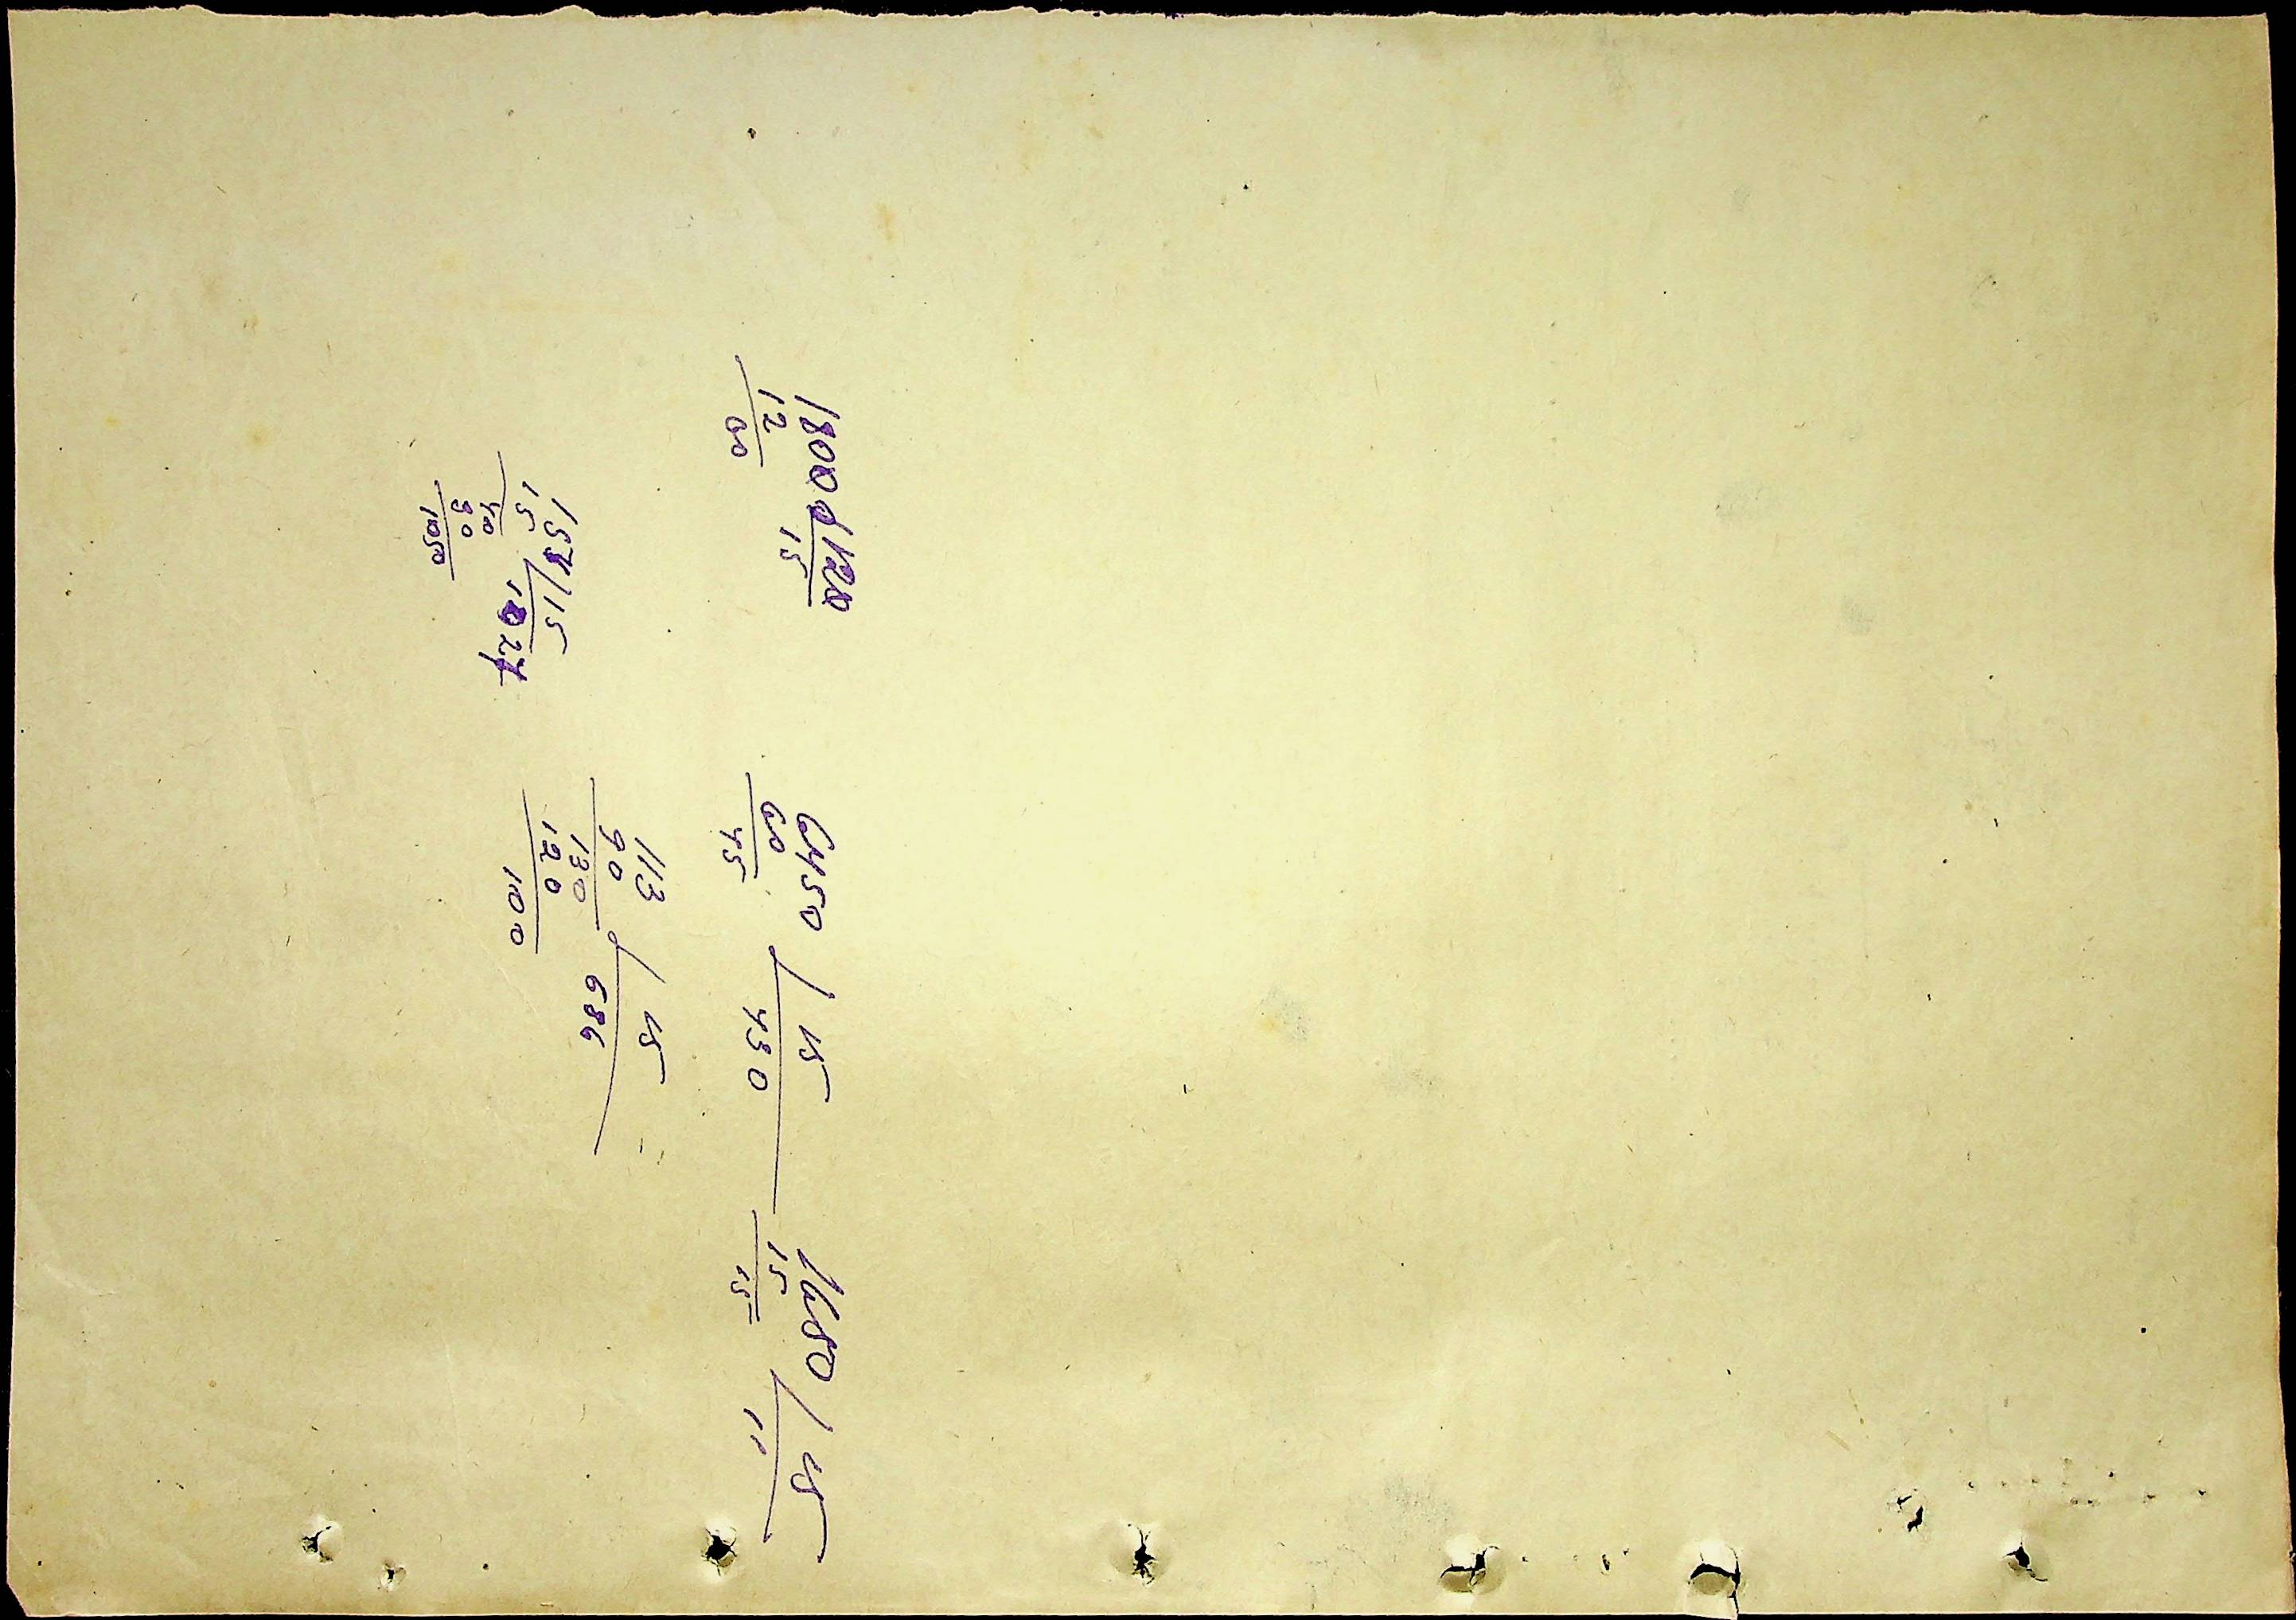 18000 | 120
12 15
60
6450 | 15
60 430
45
1650 | 15
15 11
15
154 | 15
15 1027
40
30
113 | 15
90 686
130
120
100